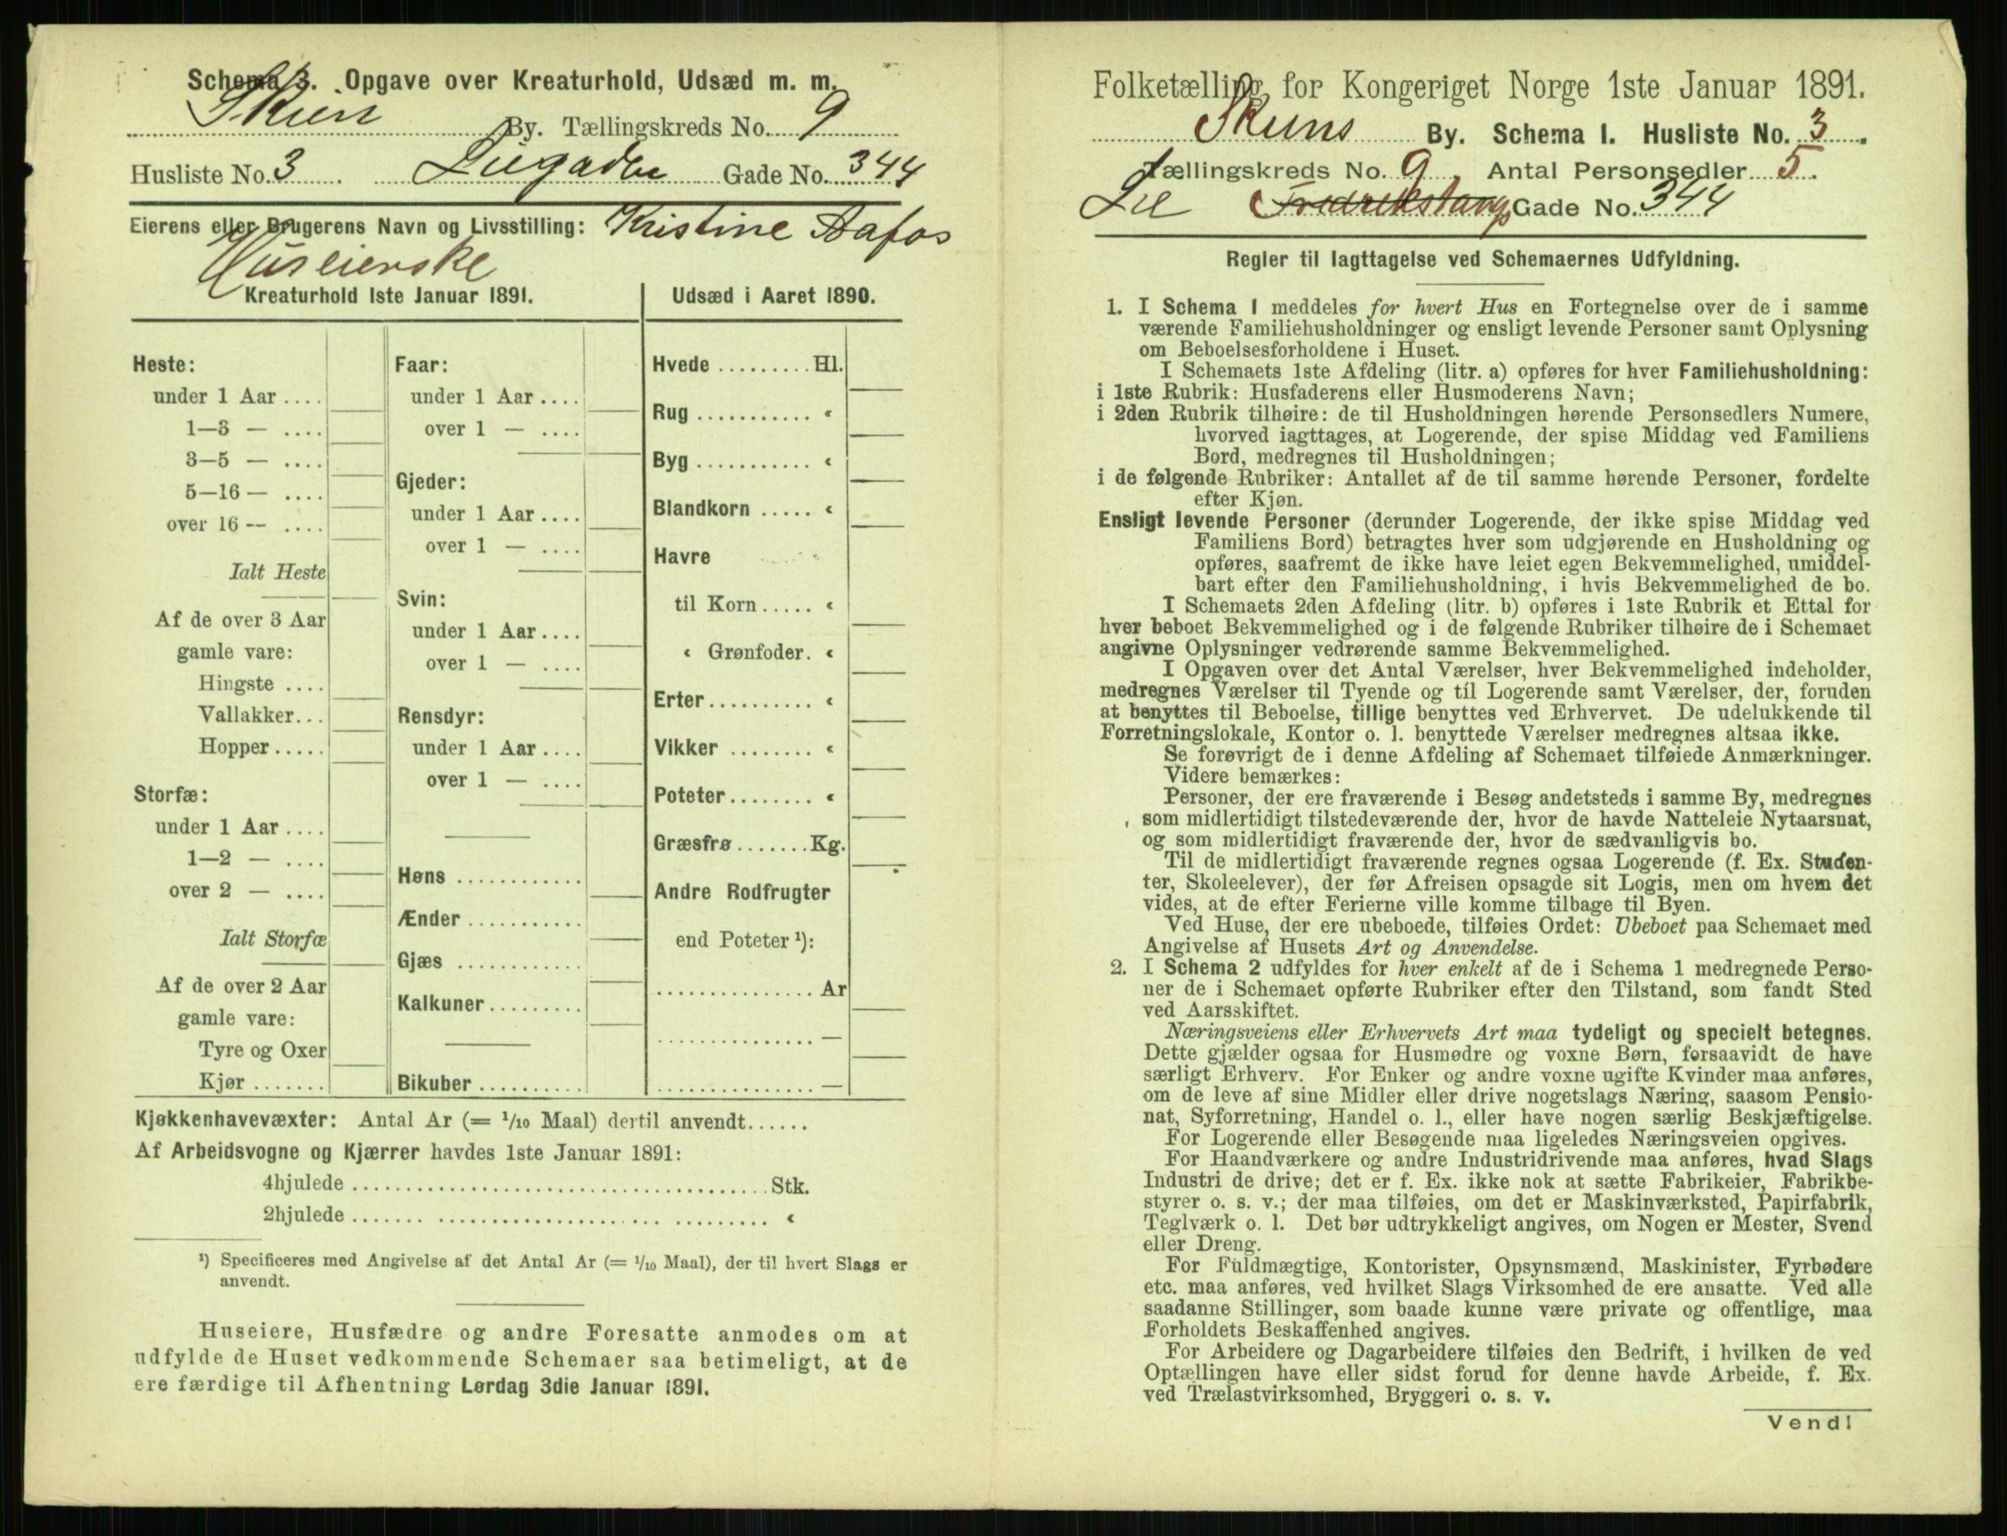 Schema 3. Opgave over Kreaturhold, Udsæd m. m.
Skien By. Tællingskreds No. 9
Husliste No. 3 Liegaden Gade No. 344
Eierens eller Brugerens Navn og Livsstilling: Kristine Aafos
Huseierske
Kreaturhold 1ste Januar 1891.
Heste:
under 1 Aar ....
1—3 — ....
3—5 — ....
5—16 — ....
over 16 — ....
Ialt Heste
Af de over 3 Aar
gamle vare:
Hingste ....
Vallakker...
Hopper.....
Storfæ:
under 1 Aar ....
1—2 — ....
over 2 — ....
Ialt Storfæ
Af de over 2 Aar
gamle vare:
Tyre og Oxer
Kjør .......
Faar:
under 1 Aar ....
over 1 — ....
Gjeder:
under 1 Aar ....
over 1 — ....
Svin:
under 1 Aar ....
over 1 — ....
Rensdyr:
under 1 Aar ....
over 1 — ....
Høns ............
Ænder ...........
Gjæs ............
Kalkuner.........
Bikuber ..........
Udsæd i Aaret 1890.
Hvede ......... Hl.
Rug ........... «
Byg ........... «
Blandkorn ..... «
Havre
til Korn..... «
« Grønfoder. «
Erter.......... «
Vikker ........ «
Poteter........ «
Græsfrø....... Kg.
Andre Rodfrugter
end Poteter ¹):
............... Ar
............... —
............... —
Kjøkkenhavevæxter: Antal Ar (= 1/10 Maal) dertil anvendt......
Af Arbeidsvogne og Kjærrer havdes 1ste Januar 1891:
4hjulede ....................................... Stk.
2hjulede ....................................... «
¹) Specificeres med Angivelse af det Antal Ar (= 1/10 Maal), der til hvert Slags er
anvendt.
Huseiere, Husfædre og andre Foresatte anmodes om at
udfylde de Huset vedkommende Schemaer saa betimeligt, at de
ere færdige til Afhentning Lørdag 3die Januar 1891.
Folketælling for Kongeriget Norge 1ste Januar 1891.
Skiens By. Schema 1. Husliste No. 3
Tællingskreds No. 9. Antal Personsedler 5.
Lie Gade No. 344
Regler til Iagttagelse ved Schemaernes Udfyldning.
1. I Schema 1 meddeles for hvert Hus en Fortegnelse over de i samme
værende Familiehusholdninger og ensligt levende Personer samt Oplysning
om Beboelsesforholdene i Huset.
I Schemaets 1ste Afdeling (litr. a) opføres for hver Familiehusholdning:
i 1ste Rubrik: Husfaderens eller Husmoderens Navn;
i 2den Rubrik tilhøire: de til Husholdningen hørende Personsedlers Numere,
hvorved iagttages, at Logerende, der spise Middag ved Familiens
Bord, medregnes til Husholdningen;
i de følgende Rubriker: Antallet af de til samme hørende Personer, fordelte
efter Kjøn.
Ensligt levende Personer (derunder Logerende, der ikke spise Middag ved
Familiens Bord) betragtes hver som udgjørende en Husholdning og
opføres, saafremt de ikke have leiet egen Bekvemmelighed, umiddel-
bart efter den Familiehusholdning, i hvis Bekvemmelighed de bo.
I Schemaets 2den Afdeling (litr. b) opføres i 1ste Rubrik et Ettal for
hver beboet Bekvemmelighed og i de følgende Rubriker tilhøire de i Schemaet
angivne Oplysninger vedrørende samme Bekvemmelighed.
I Opgaven over det Antal Værelser, hver Bekvemmelighed indeholder,
medregnes Værelser til Tyende og til Logerende samt Værelser, der, foruden
at benyttes til Beboelse, tillige benyttes ved Erhvervet. De udelukkende til
Forretningslokale, Kontor o. l. benyttede Værelser medregnes altsaa ikke.
Se forøvrigt de i denne Afdeling af Schemaet tilføiede Anmærkninger.
Videre bemærkes:
Personer, der ere fraværende i Besøg andetsteds i samme By, medregnes
som midlertidigt tilstedeværende der, hvor de havde Natteleie Nytaarsnat,
og som midlertidigt fraværende der, hvor de sædvanligvis bo.
Til de midlertidigt fraværende regnes ogsaa Logerende (f. Ex. Studen-
ter, Skoleelever), der før Afreisen opsagde sit Logis, men om hvem det
vides, at de efter Ferierne ville komme tilbage til Byen.
Ved Huse, der ere ubeboede, tilføies Ordet: Ubeboet paa Schemaet med
Angivelse af Husets Art og Anvendelse.
2. I Schema 2 udfyldes for hver enkelt af de i Schema 1 medregnede Perso-
ner de i Schemaet opførte Rubriker efter den Tilstand, som fandt Sted
ved Aarsskiftet.
Næringsveiens eller Erhvervets Art maa tydeligt og specielt betegnes.
Dette gjælder ogsaa for Husmødre og voxne Børn, forsaavidt de have
særligt Erhverv. For Enker og andre voxne ugifte Kvinder maa anføres,
om de leve af sine Midler eller drive nogetslags Næring, saasom Pensio-
nat, Syforretning, Handel o. l., eller have nogen særlig Beskjæftigelse.
For Logerende eller Besøgende maa ligeledes Næringsveien opgives.
For Haandværkere og andre Industridrivende maa anføres, hvad Slags
Industri de drive; det er f. Ex. ikke nok at sætte Fabrikeier, Fabrikbe-
styrer o. s. v.; der maa tilføies, om det er Maskinværksted, Papirfabrik,
Teglværk o. l. Det bør udtrykkeligt angives, om Nogen er Mester, Svend
eller Dreng.
For Fuldmægtige, Kontorister, Opsynsmænd, Maskinister, Fyrbødere
etc. maa anføres, ved hvilket Slags Virksomhed de ere ansatte. Ved alle
saadanne Stillinger, som baade kunne være private og offentlige, maa
Forholdets Beskaffenhed angives.
For Arbeidere og Dagarbeidere tilføies den Bedrift, i hvilken de ved
Optællingen have eller sidst forud for denne havde Arbeide, f. Ex.
ved Trælastvirksomhed, Bryggeri o. s. v.
Vend!